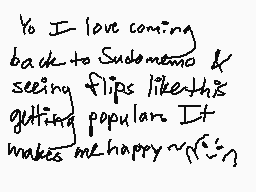 Yo I love coming
back to Sudomemo &
seeing flips like this
getting popular. It
makes me happy ~